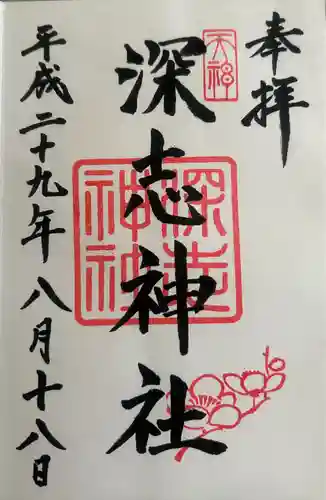 奉拝
天神
深志神社
深志神社
平成二十九年八月十八日